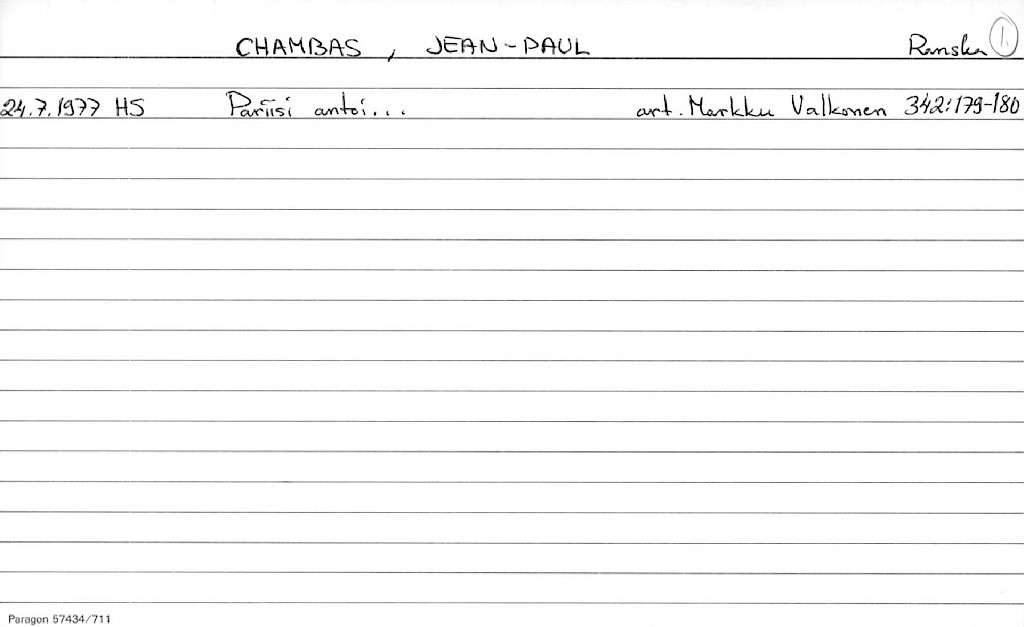 CHAMBAS, JEAN-PAUL Ranska 1.
24.7.1977 HS Pariisi antoi... art. Markku Valkonen 342:179-180
Paragon 57434/711